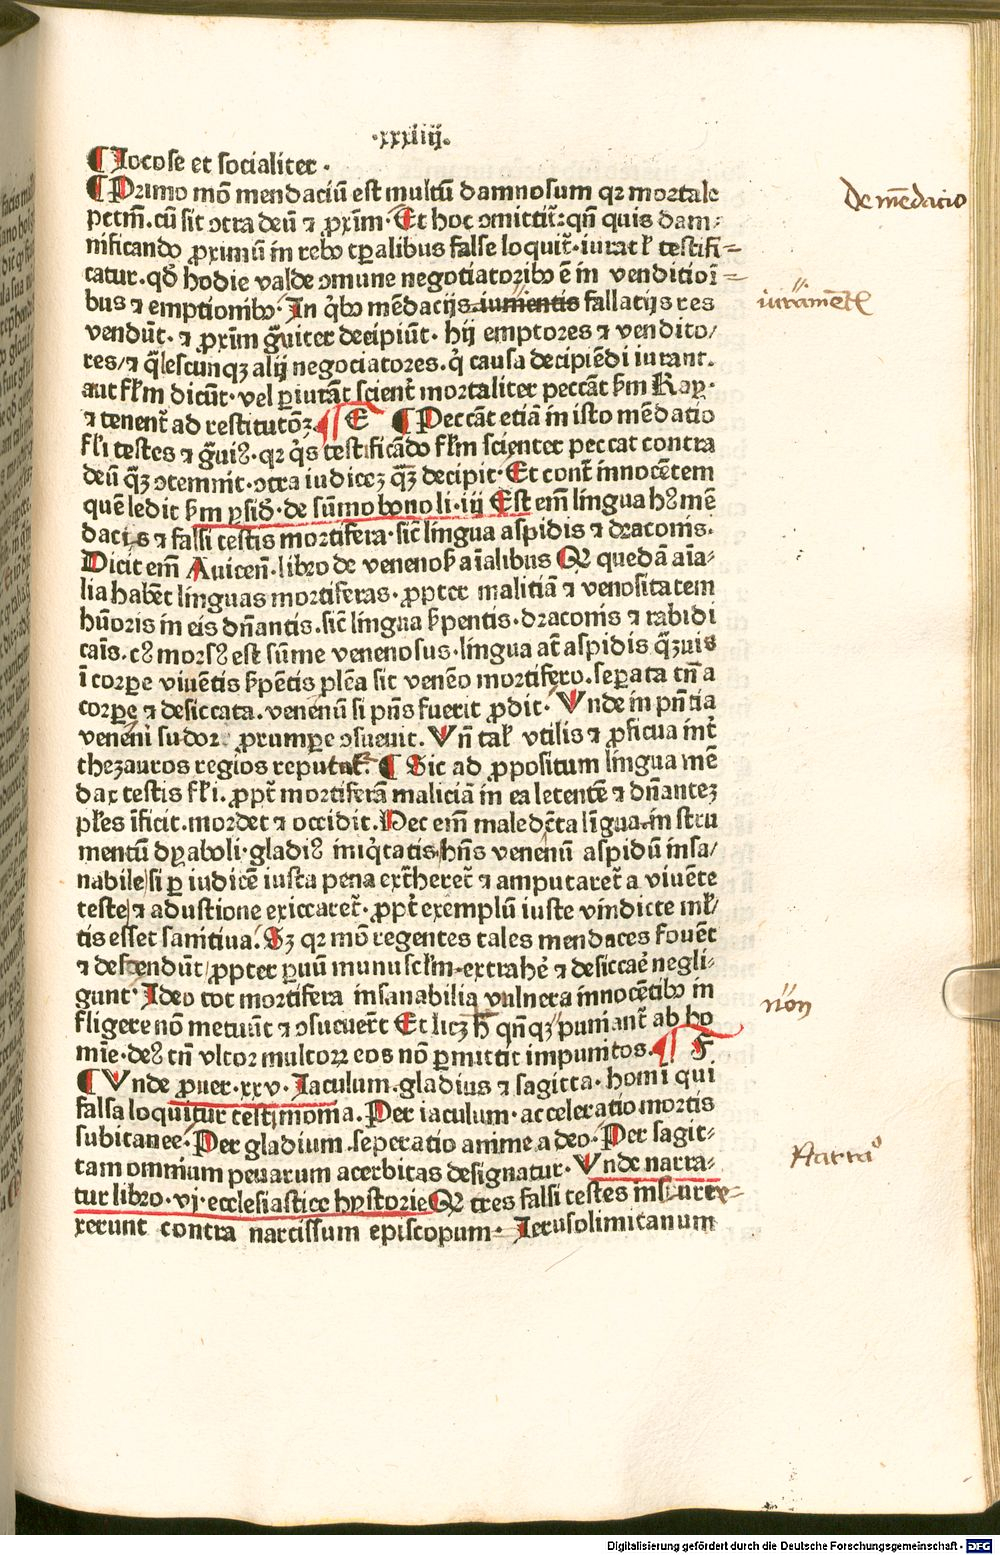 ·xxxiiij.
¶ Iocose et socialiter·
¶ Primo mō mendaciū est multū damnosum qꝛ mortale
pctm̄. cū sit ↄtra deū ⁊ ꝓxīm· Et hoc ↄmittit᷑: qn̄ quis dam⸗
nificando ꝓximū in rebꝫ tꝑalibus false loquit᷑· iurat ł testifi⸗
catur. qđ hodie valde ↄmune negotiatoribꝫ ē in venditioī
bus ⁊ emptionibꝫ· In q̇bꝫ mēdacijs iumentis fallatijs res
vendūt· ⁊ ꝓxim ḡuiter decipiūt· hij emptores ⁊ vendito/
res/ ⁊ q̄lescunqꝫ alij negociatores. q̇ causa decipiēdi iurant.
aut fl̄m dicūt· vel ꝑiurāt scient᷑ mortaliter peccāt ẜm Ray·
⁊ tenent᷑ ad restitutōꝫ ¶ E ¶ Peccāt etiā in isto mēdatio
fl̄i testes ⁊ ḡuiꝰ. qꝛ q̇s testificādo fl̄m scienter peccat contra
deū qꝫ ↄtemnit· ↄtra iudiceꝫ qꝫ decipit· Et cont᷑ innocētem
quē ledit ẜm ysid̄· de sūmo bono li· iij Est em̄ lingua hꝰ mē
dacis ⁊ falsi testis mortifera· sic̄ lingua aspidis ⁊ draconis.
Dicit em̄ Auicen̄· libro de venenoꝝ aīalibus Qꝫ quedā aīa⸗
lia habēt linguas mortiferas· ꝓpter malitiā ⁊ venositatem
hūoris in eis dn̄antis. sic̄ lingua ẜpentis· draconis ⁊ rabidi
caīs. cꝰ morsꝰ est sūme venenosus· lingua at̄ aspidis q̄ꝫuis
ī corpe viuētis ẜpētis plēa sit venēo mortifero. seꝑata tn̄ a
corꝑe ⁊ desiccata. venenū si pn̄s fuerit ꝓdit· Vnde in pn̄tia
veneni sudoꝛ ꝓrumpe ↄsueuit. Vn̄ tał vtilis ⁊ ꝓficua int᷑
thezauros regios reputat᷑. ¶ Sic ad ꝓpositum lingua mē
dax testis fl̄i. ꝓpt᷑ mortiferā maliciā in ea letentē ⁊ dn̄anteꝫ
pl̄es īficit. mordet ⁊ occidit. Hec em̄ maledcta līgua in stru
mentū dyaboli· gladiꝰ iniq̇tatis hn̄s venenū aspidū insa/
nabile si ꝑ iudicē iusta pena ext᷑heret᷑ ⁊ amputaret᷑ a viuēte
teste ⁊ adustione exiccaret᷑· ꝓpt᷑ exemplū iuste vindicte ml̄/
tis esset sanitiua. Sꝫ qꝛ mō regentes tales mendaces fouēt
⁊ defendūt/ ꝓpter ꝑuū munuscl̄m· extrahe᷑ ⁊ desiccae᷑ negli⸗
gunt· Ideo tot mortifera insanabilia vulnera innocētibꝫ in
fligere nō metuūt ⁊ ↄsueuer̄t Et licꝫ h̄ qn̄qꝫ puniant᷑ ab ho
mīe· deꝰ tn̄ vltor multoꝝ eos nō ꝑmittit impunitos. ¶ F
¶ Vnde ꝓuer· xxv· Iaculum. gladius ⁊ sagitta· homi qui
falsa loquitur testimonia. Per iaculum· acceleratio mortis
subitanee· Per gladium· seperatio anime a deo· Per sagit⸗
tam omnium penarum acerbitas designatur· Vnde narra⸗
tur libro· vj· ecclesiastice hystorie Qꝫ tres falsi testes insurre
xerunt contra narcissum episcopum· Ierusolimitanum
De mēdacio
iuramētꝭ
nōn
Narraꝰ
Digitalisierung gefördert durch die Deutsche Forschungsgemeinschaft · DFG